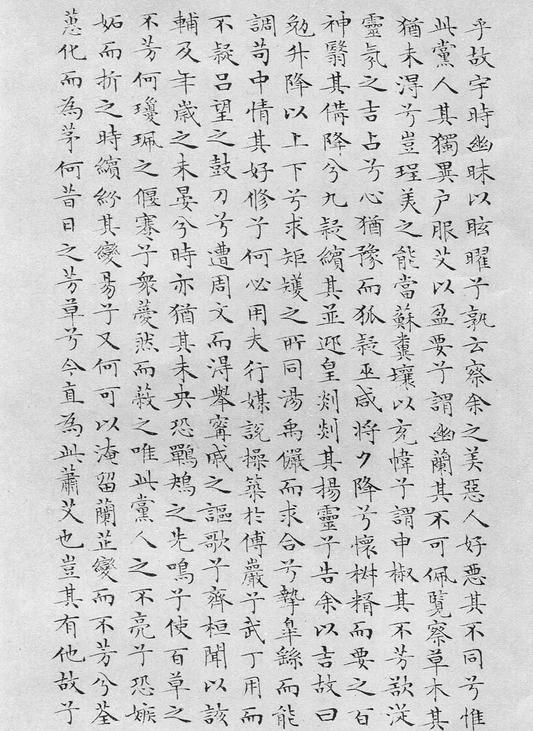 乎故宇時幽昧以眩曜兮孰云察余之美惡人好惡其不同兮惟
此黨人其獨異户服艾以盈要兮謂幽蘭其不可佩覽察草木其
猶未淂兮豈珵美之能當蘇糞壤以充幃兮謂申椒其不芳欲從
靈氛之吉占兮心猶豫而狐疑巫咸将夕降兮懷椒糈而要之百
神翳其備降兮九疑繽其並迎皇剡剡其揚靈兮告余以吉故曰
勉升降以上下兮求矩矱之所同湯禹儼而求合兮摯皐繇而能
調苟中情其好修兮何必用夫行媒說操築於傅巖兮武丁用而
不疑吕望之鼓刀兮遭周文而淂舉甯戚之謳歌兮齊桓聞以該
輔及年歲之未晏兮時亦猶其未央恐鷤鴂之先鳴兮使百草之
不芳何瓊珮之偃蹇兮衆薆然而蔽之唯此黨人之不亮兮恐嫉
妬而折之時繽紛其變易兮又何可以淹留蘭芷變而不芳兮荃
蕙化而為茅何昔日之芳草兮今直為此蕭艾也豈其有他故兮